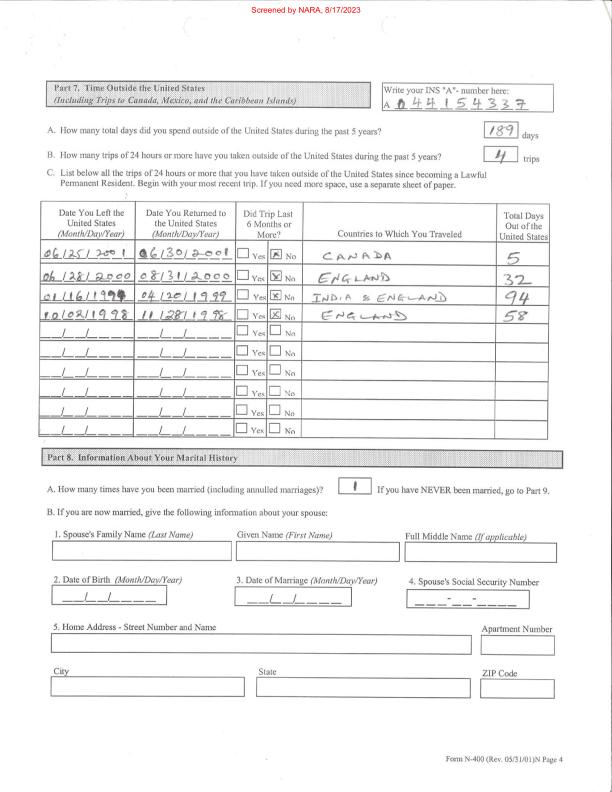 Screened by NARA, 8/17/2023
Part 7. Time Outside the United States
(Including Trips to Canada, Mexico, and the Caribbean Islands)
Write your INS "A"- number here:
A 0 4 4 1 5 4 3 3 7
A. How many total days did you spend outside of the United States during the past 5 years? 189 days
B. How many trips of 24 hours or more have you taken outside of the United States during the past 5 years? 4 trips
C. List below all the trips of 24 hours or more that you have taken outside of the United States since becoming a Lawful
Permanent Resident. Begin with your most recent trip. If you need more space, use a separate sheet of paper.
Date You Left the United States (Month/Day/Year) Date You Returned to the United States (Month/Day/Year) Did Trip Last 6 Months or More? Countries to Which You Traveled Total Days Out of the United States
06/25/2001 06/30/2001 Yes No CANADA 5
06/28/2000 08/31/2000 Yes No ENGLAND 32
01/16/1999 04/20/1999 Yes No INDIA & ENGLAND 94
10/02/1998 11/28/1998 Yes No ENGLAND 58
_ _/_ _/_ _ _ _ _ _/_ _/_ _ _ _ Yes No
_ _/_ _/_ _ _ _ _ _/_ _/_ _ _ _ Yes No
_ _/_ _/_ _ _ _ _ _/_ _/_ _ _ _ Yes No
_ _/_ _/_ _ _ _ _ _/_ _/_ _ _ _ Yes No
_ _/_ _/_ _ _ _ _ _/_ _/_ _ _ _ Yes No
_ _/_ _/_ _ _ _ _ _/_ _/_ _ _ _ Yes No
Part 8. Information About Your Marital History
A. How many times have you been married (including annulled marriages)? 1 If you have NEVER been married, go to Part 9.
B. If you are now married, give the following information about your spouse:
1. Spouse's Family Name (Last Name) Given Name (First Name) Full Middle Name (If applicable)
2. Date of Birth (Month/Day/Year) 3. Date of Marriage (Month/Day/Year) 4. Spouse's Social Security Number
_ _/_ _/_ _ _ _ _ _/_ _/_ _ _ _ _ _ _-_ _-_ _ _ _
5. Home Address - Street Number and Name Apartment Number
City State ZIP Code
Form N-400 (Rev. 05/31/01)N Page 4